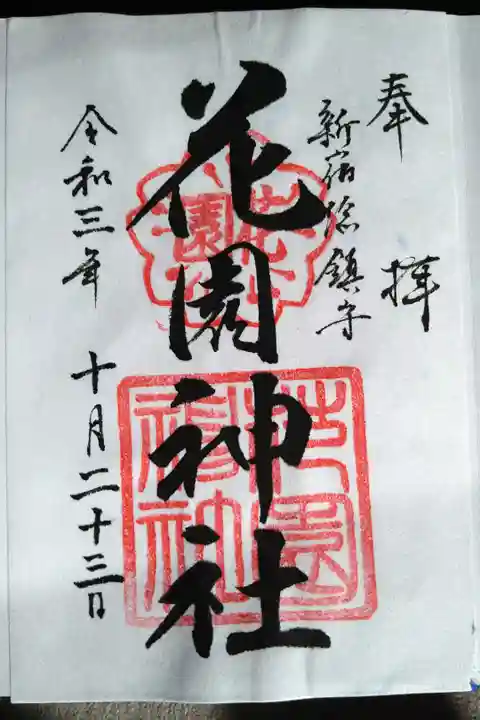 奉拝
新宿総鎮守
花園神社
令和三年十月二十三日
花園神社